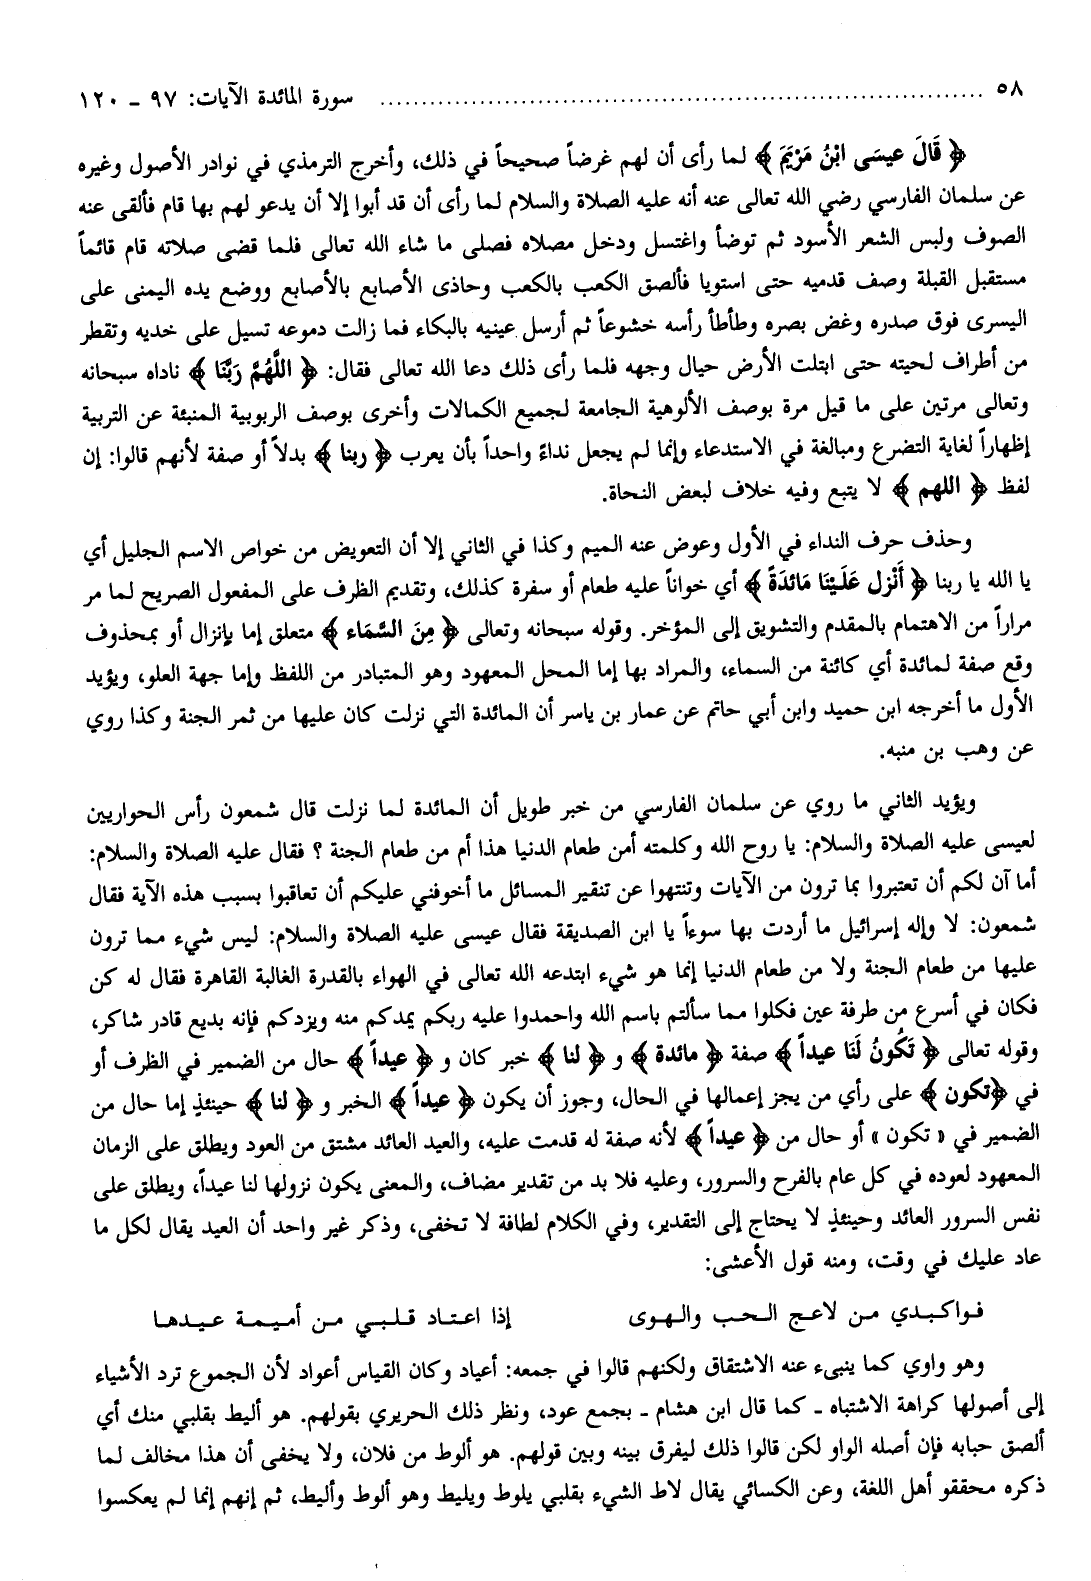 ٥٨ ........................................................................ سورة المائدة الآيات: ٩٧ ـ ١٢٠
﴿ قَالَ عيسَى ابْنُ مَرْيَمَ ﴾ لما رأى أن لهم غرضاً صحيحاً في ذلك، وأخرج الترمذي في نوادر الأصول وغيره
عن سلمان الفارسي رضي الله تعالى عنه أنه عليه الصلاة والسلام لما رأى أن قد أبوا إلا أن يدعو لهم بها قام فألقى عنه
الصوف ولبس الشعر الأسود ثم توضأ واغتسل ودخل مصلاه فصلى ما شاء الله تعالى فلما قضى صلاته قام قائماً
مستقبل القبلة وصف قدميه حتى استويا فألصق الكعب بالكعب وحاذى الأصابع بالأصابع ووضع يده اليمنى على
اليسرى فوق صدره وغض بصره وطأطأ رأسه خشوعاً ثم أرسل عينيه بالبكاء فما زالت دموعه تسيل على خديه وتقطر
من أطراف لحيته حتى ابتلت الأرض حيال وجهه فلما رأى ذلك دعا الله تعالى فقال: ﴿ اللَّهُمَّ رَبَّنَا ﴾ ناداه سبحانه
وتعالى مرتين على ما قيل مرة بوصف الألوهية الجامعة لجميع الكمالات وأخرى بوصف الربوبية المنبئة عن التربية
إظهاراً لغاية التضرع ومبالغة في الاستدعاء وإنما لم يجعل نداءً واحداً بأن يعرب ﴿ ربنا ﴾ بدلاً أو صفة لأنهم قالوا: إن
لفظ ﴿ اللهم ﴾ لا يتبع وفيه خلاف لبعض النحاة.
وحذف حرف النداء في الأول وعوض عنه الميم وكذا في الثاني إلا أن التعويض من خواص الاسم الجليل أي
يا الله يا ربنا ﴿ أَنْزل عَلَيْنَا مَائدَةً ﴾ أي خواناً عليه طعام أو سفرة كذلك، وتقديم الظرف على المفعول الصريح لما مر
مراراً من الاهتمام بالمقدم والتشويق إلى المؤخر. وقوله سبحانه وتعالى ﴿ مِنَ السَّمَاء ﴾ متعلق إما بإنزال أو بمحذوف
وقع صفة لمائدة أي كائنة من السماء، والمراد بها إما المحل المعهود وهو المتبادر من اللفظ وإما جهة العلو، ويؤيد
الأول ما أخرجه ابن حميد وابن أبي حاتم عن عمار بن ياسر أن المائدة التي نزلت كان عليها من ثمر الجنة وكذا روي
عن وهب بن منبه.
ويؤيد الثاني ما روي عن سلمان الفارسي من خبر طويل أن المائدة لما نزلت قال شمعون رأس الحواريين
لعيسى عليه الصلاة والسلام: يا روح الله وكلمته أمن طعام الدنيا هذا أم من طعام الجنة ؟ فقال عليه الصلاة والسلام:
أما آن لكم أن تعتبروا بما ترون من الآيات وتنتهوا عن تنقير المسائل ما أخوفني عليكم أن تعاقبوا بسبب هذه الآية فقال
شمعون: لا وإله إسرائيل ما أردت بها سوءاً يا ابن الصديقة فقال عيسى عليه الصلاة والسلام: ليس شيء مما ترون
عليها من طعام الجنة ولا من طعام الدنيا إنما هو شيء ابتدعه الله تعالى في الهواء بالقدرة الغالبة القاهرة فقال له كن
فكان في أسرع من طرفة عين فكلوا مما سألتم باسم الله واحمدوا عليه ربكم يمدكم منه ويزدكم فإنه بديع قادر شاكر،
وقوله تعالى ﴿ تَكُونُ لَنَا عيداً ﴾ صفة ﴿ مائدة ﴾ و ﴿ لنا ﴾ خبر كان و ﴿ عيداً ﴾ حال من الضمير في الظرف أو
في ﴿تكون ﴾ على رأي من يجز إعمالها في الحال، وجوز أن يكون ﴿ عيداً ﴾ الخبر و ﴿ لنا ﴾ حينئذٍ إما حال من
الضمير في « تكون » أو حال من ﴿ عيداً ﴾ لأنه صفة له قدمت عليه، والعيد العائد مشتق من العود ويطلق على الزمان
المعهود لعوده في كل عام بالفرح والسرور، وعليه فلا بد من تقدير مضاف، والمعنى يكون نزولها لنا عيداً، ويطلق على
نفس السرور العائد وحينئذٍ لا يحتاج إلى التقدير، وفي الكلام لطافة لا تخفى، وذكر غير واحد أن العيد يقال لكل ما
عاد عليك في وقت، ومنه قول الأعشى:
فواكبدي من لاعج الحب والهوى إذا اعتاد قلبي من أميمة عيدها
وهو واوي كما ينبىء عنه الاشتقاق ولكنهم قالوا في جمعه: أعياد وكان القياس أعواد لأن الجموع ترد الأشياء
إلى أصولها كراهة الاشتباه ـ كما قال ابن هشام ـ بجمع عود، ونظر ذلك الحريري بقولهم. هو أليط بقلبي منك أي
ألصق حبابه فإن أصله الواو لكن قالوا ذلك ليفرق بينه وبين قولهم. هو ألوط من فلان، ولا يخفى أن هذا مخالف لما
ذكره محققو أهل اللغة، وعن الكسائي يقال لاط الشيء بقلبي يلوط ويليط وهو ألوط وأليط، ثم إنهم إنما لم يعكسوا